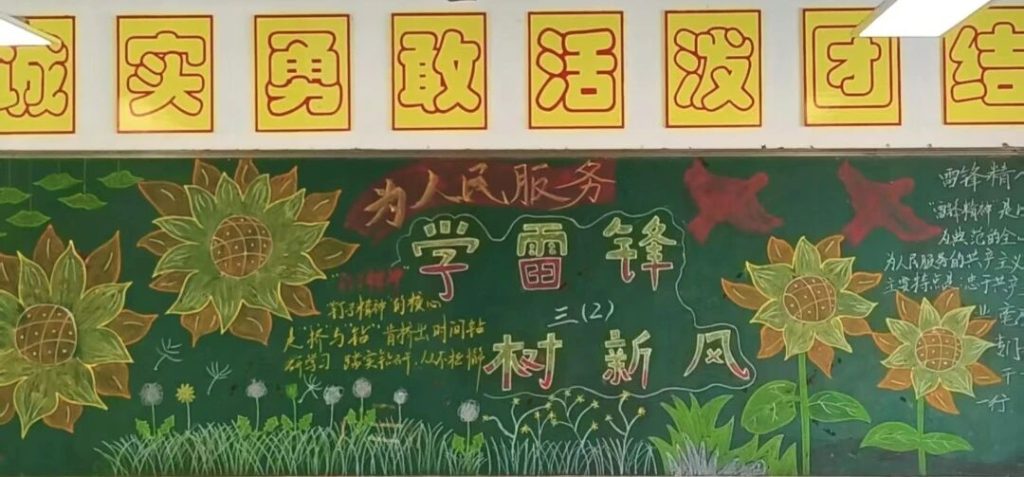 诚实勇敢活泼团结
为人民服务
学雷锋
三(2)
树新风
"钉子精神"的核心
是"挤与钻"肯挤出时间钻
研学习 踏实钻研,从不松懈
雷锋精
"雷锋精神"是
为典范的全
为人民服务的共产主义
主要特点是:忠于共产
一行